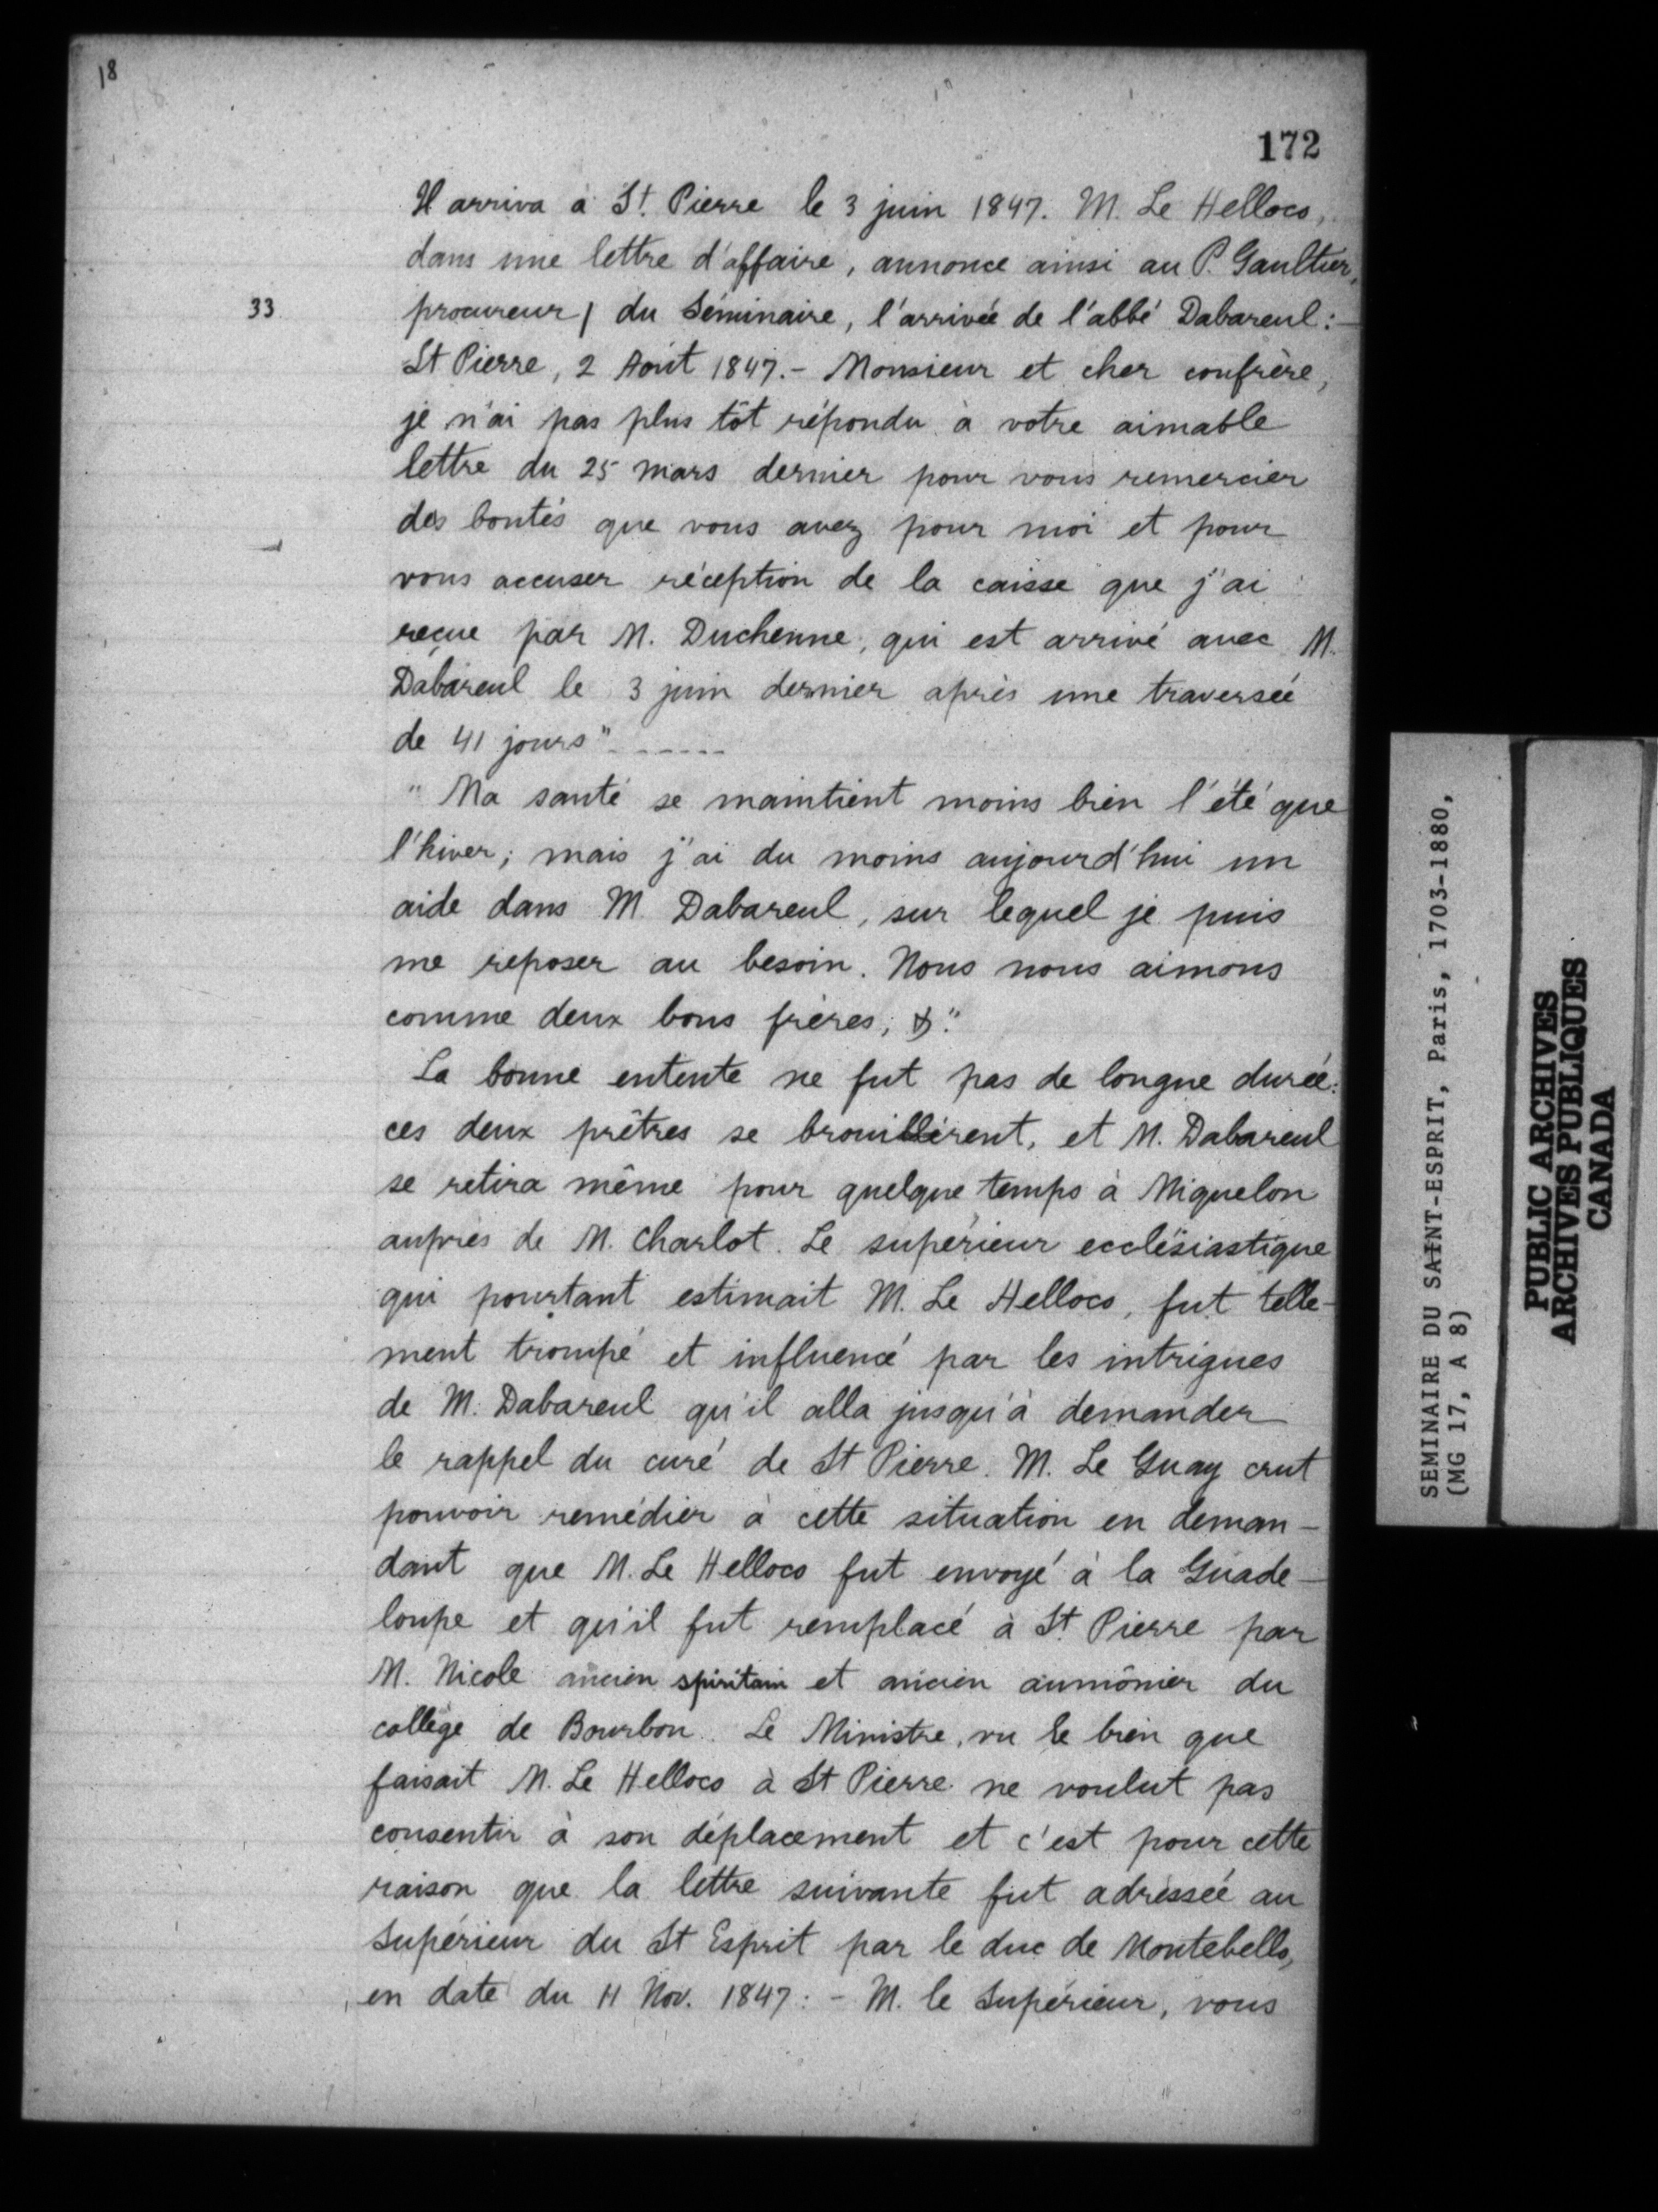 18
172
Il arriva à St. Pierre le 3 juin 1847. M. Le Helloco,
dans une lettre d'affaire, annonce ainsi au P. Gaultier,
33 procureur / du Séminaire, l'arrivée de l'abbé Dabareul :-
St Pierre, 2 Août 1847.- Monsieur et cher confrère,
je n'ai pas plus tôt répondu à votre aimable
lettre du 25 mars dernier pour vous remercier
des bontés que vous avez pour moi et pour
vous accuser réception de la caisse que j'ai
reçue par M. Duchenne, qui est arrivé avec M.
Dabareul le 3 juin dernier après une traversée
de 41 jours" ------
" Ma santé se maintient moins bien l'été que
l'hiver ; mais j'ai du moins aujourd'hui un
aide dans M. Dabareul, sur lequel je puis
me reposer au besoin. Nous nous aimons
comme deux bons frères, &."
La bonne entente ne fut pas de longue durée :
ces deux prêtres se brouillèrent, et M. Dabareul
se retira même pour quelque temps à Miquelon
auprès de M. Charlot. Le supérieur ecclésiastique
qui pourtant estimait M. Le Helloco, fut telle-
ment trompé et influencé par les intrigues
de M. Dabareul qu'il alla jusqu'à demander
le rappel du curé de St Pierre. M. Le Guay crut
pouvoir remédier à cette situation en deman-
dant que M. Le Helloco fut envoyé à la Guade-
loupe et qu'il fut remplacé à St Pierre par
M. Nicole ancien spiritain et ancien aumônier du
collège de Bourbon. Le Ministre, vu le bien que
faisait M. Le Helloco à St Pierre ne voulut pas
consentir à son déplacement et c'est pour cette
raison que la lettre suivante fut adressée au
Supérieur du St Esprit par le duc de Montebello,
en date du 11 Nov. 1847 : - M. le Supérieur, vous
SEMINAIRE DU SAINT-ESPRIT, Paris, 1703-1880,
(MG 17, A 8)
PUBLIC ARCHIVES
ARCHIVES PUBLIQUES
CANADA